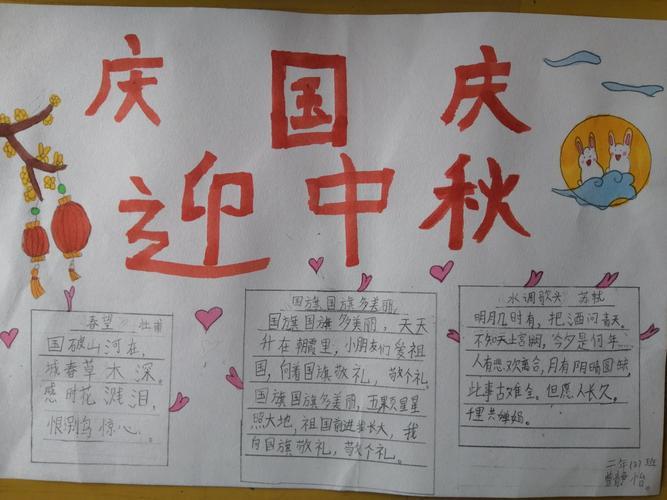 庆国庆
迎中秋
春望 杜甫
国破山河在，
城春草木深。
感时花溅泪，
恨别鸟惊心。
国旗国旗多美丽
国旗国旗多美丽，天天
升在朝霞里，小朋友们爱祖
国，向着国旗敬礼，敬个礼。
国旗国旗多美丽，五颗星星
照大地，祖国前进我长大，我
向国旗敬礼，敬个礼。
水调歌头 苏轼
明月几时有，把酒问青天。
不知天上宫阙，今夕是何年…
人有悲欢离合，月有阴晴圆缺，
此事古难全。但愿人长久。
千里共婵娟。
二年(2)班
静怡